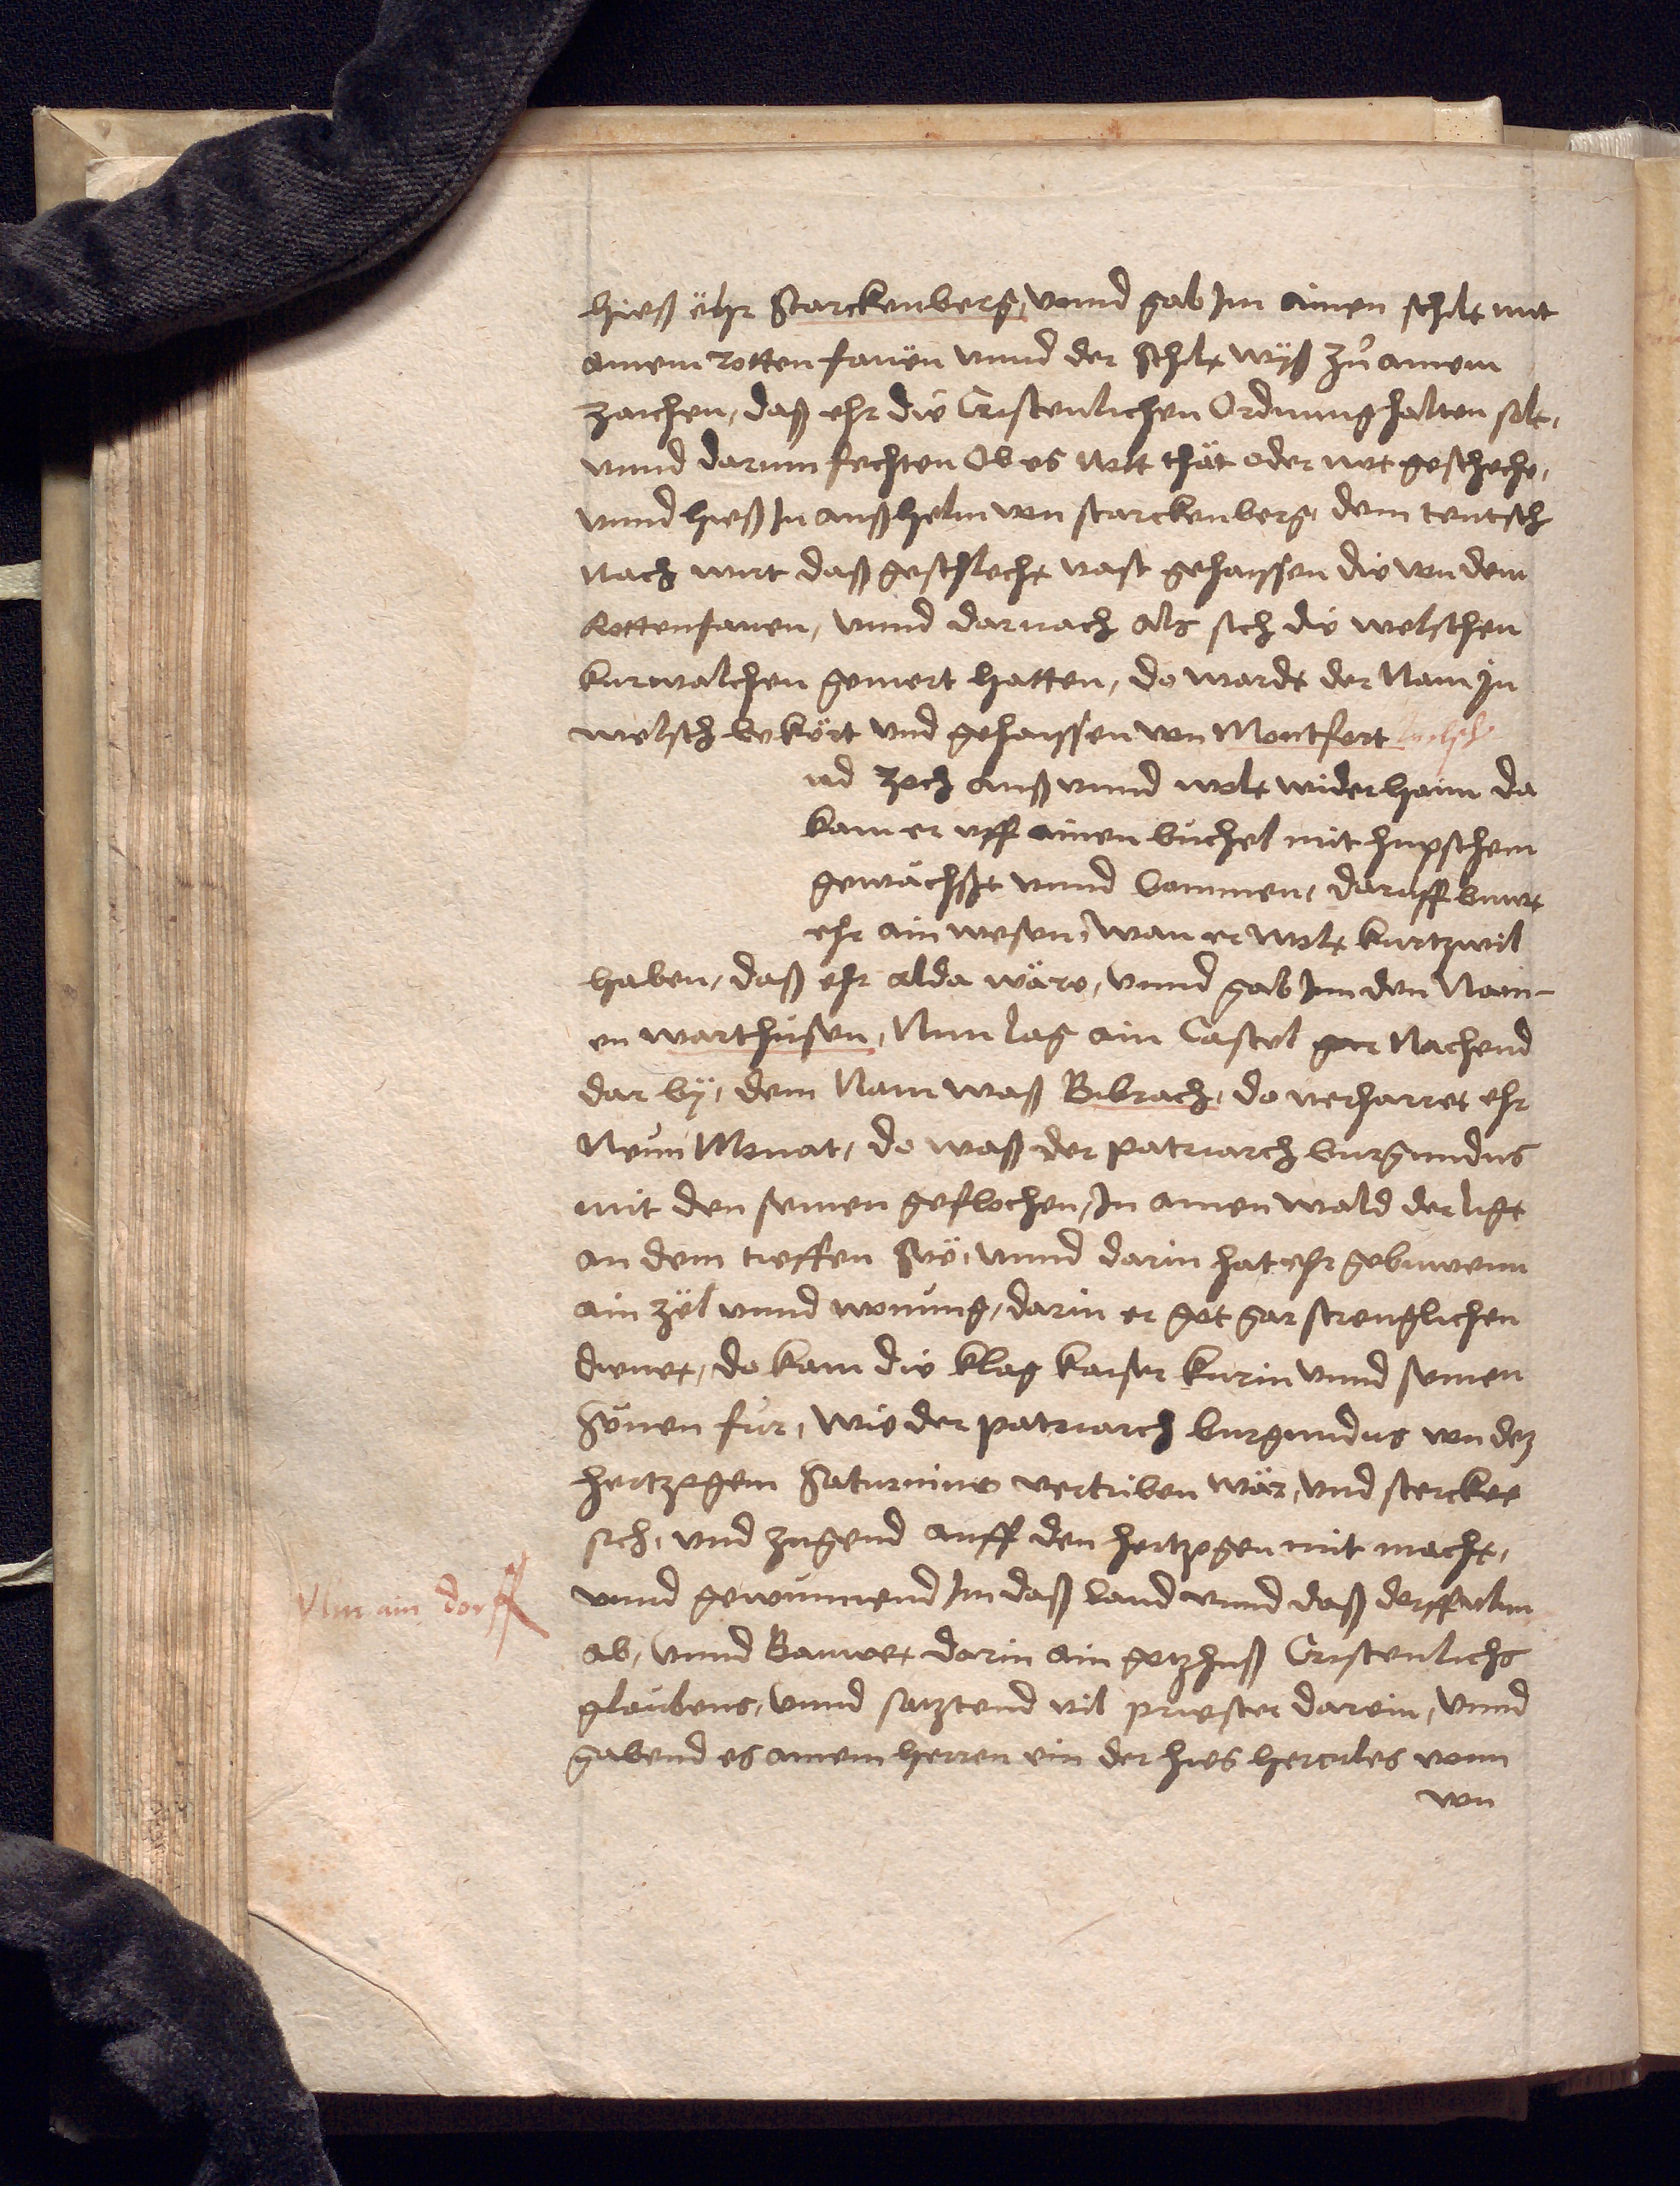 hieß ëhr Starckenberg, vnnd gab Im ainen schilt mit
ainem rotten fanën vnnd der Schilt wyß zů ainem
zaichen, daß ehr die Cristenlichen Ordnung halten solt,
vnnd darum fechten Ob es nott thät oder not geschehe,
vnnd hieß In anßhelm von starckenberg, dem teutsch
Nach wirt daß geschlecht vast gehaissen die von dem
Rottenfanen, vnnd darnach als sich die welschen
kurwalchen gemert hatten, do wardt der Nam In
welsch bekört vnd gehaissen von Montfort
nd zoch auß vnnd wolt wider haim da
kam er vff ainen büchel mit hupschem
gewächßt vnnd bommen, daruff buwt
ehr ain wesen, wan er wolt kurtzwil
haben, daß ehr alda wäre, vnnd gab Im den Nam-
en warthusen, Nun lag ain Castel gar Nachend
dar by, dem Nam waß Bibrach, do verharret ehr
Neun Monat, do waß der patriarch burgundus
mit den seinen geflochen, In ainen wald der ligt
an dem tieffen Sëe, vnnd darin hat ehr gebuwenn
ain zël vnnd wonung, darin er got gar strenglichen
dienet, do kam die klag kaiser kurin vnnd seinen
Sönen für, wie der patriarch burgundus von dez
hertzogem Saturnino vertriben wär, vnd sterckee
sich, vnd zugend auff den hertzogen mit macht,
Vlm ain dorff
vnnd gewunnend Im daß land vnnd daß dorff vlm
ab, vnnd Bauwet darin ain gotzhuß Cristenlichs
glaubens, vnnd satztend vil priester darein, vnnd
gabend es ainem herren ein der hies hercules vonn
von